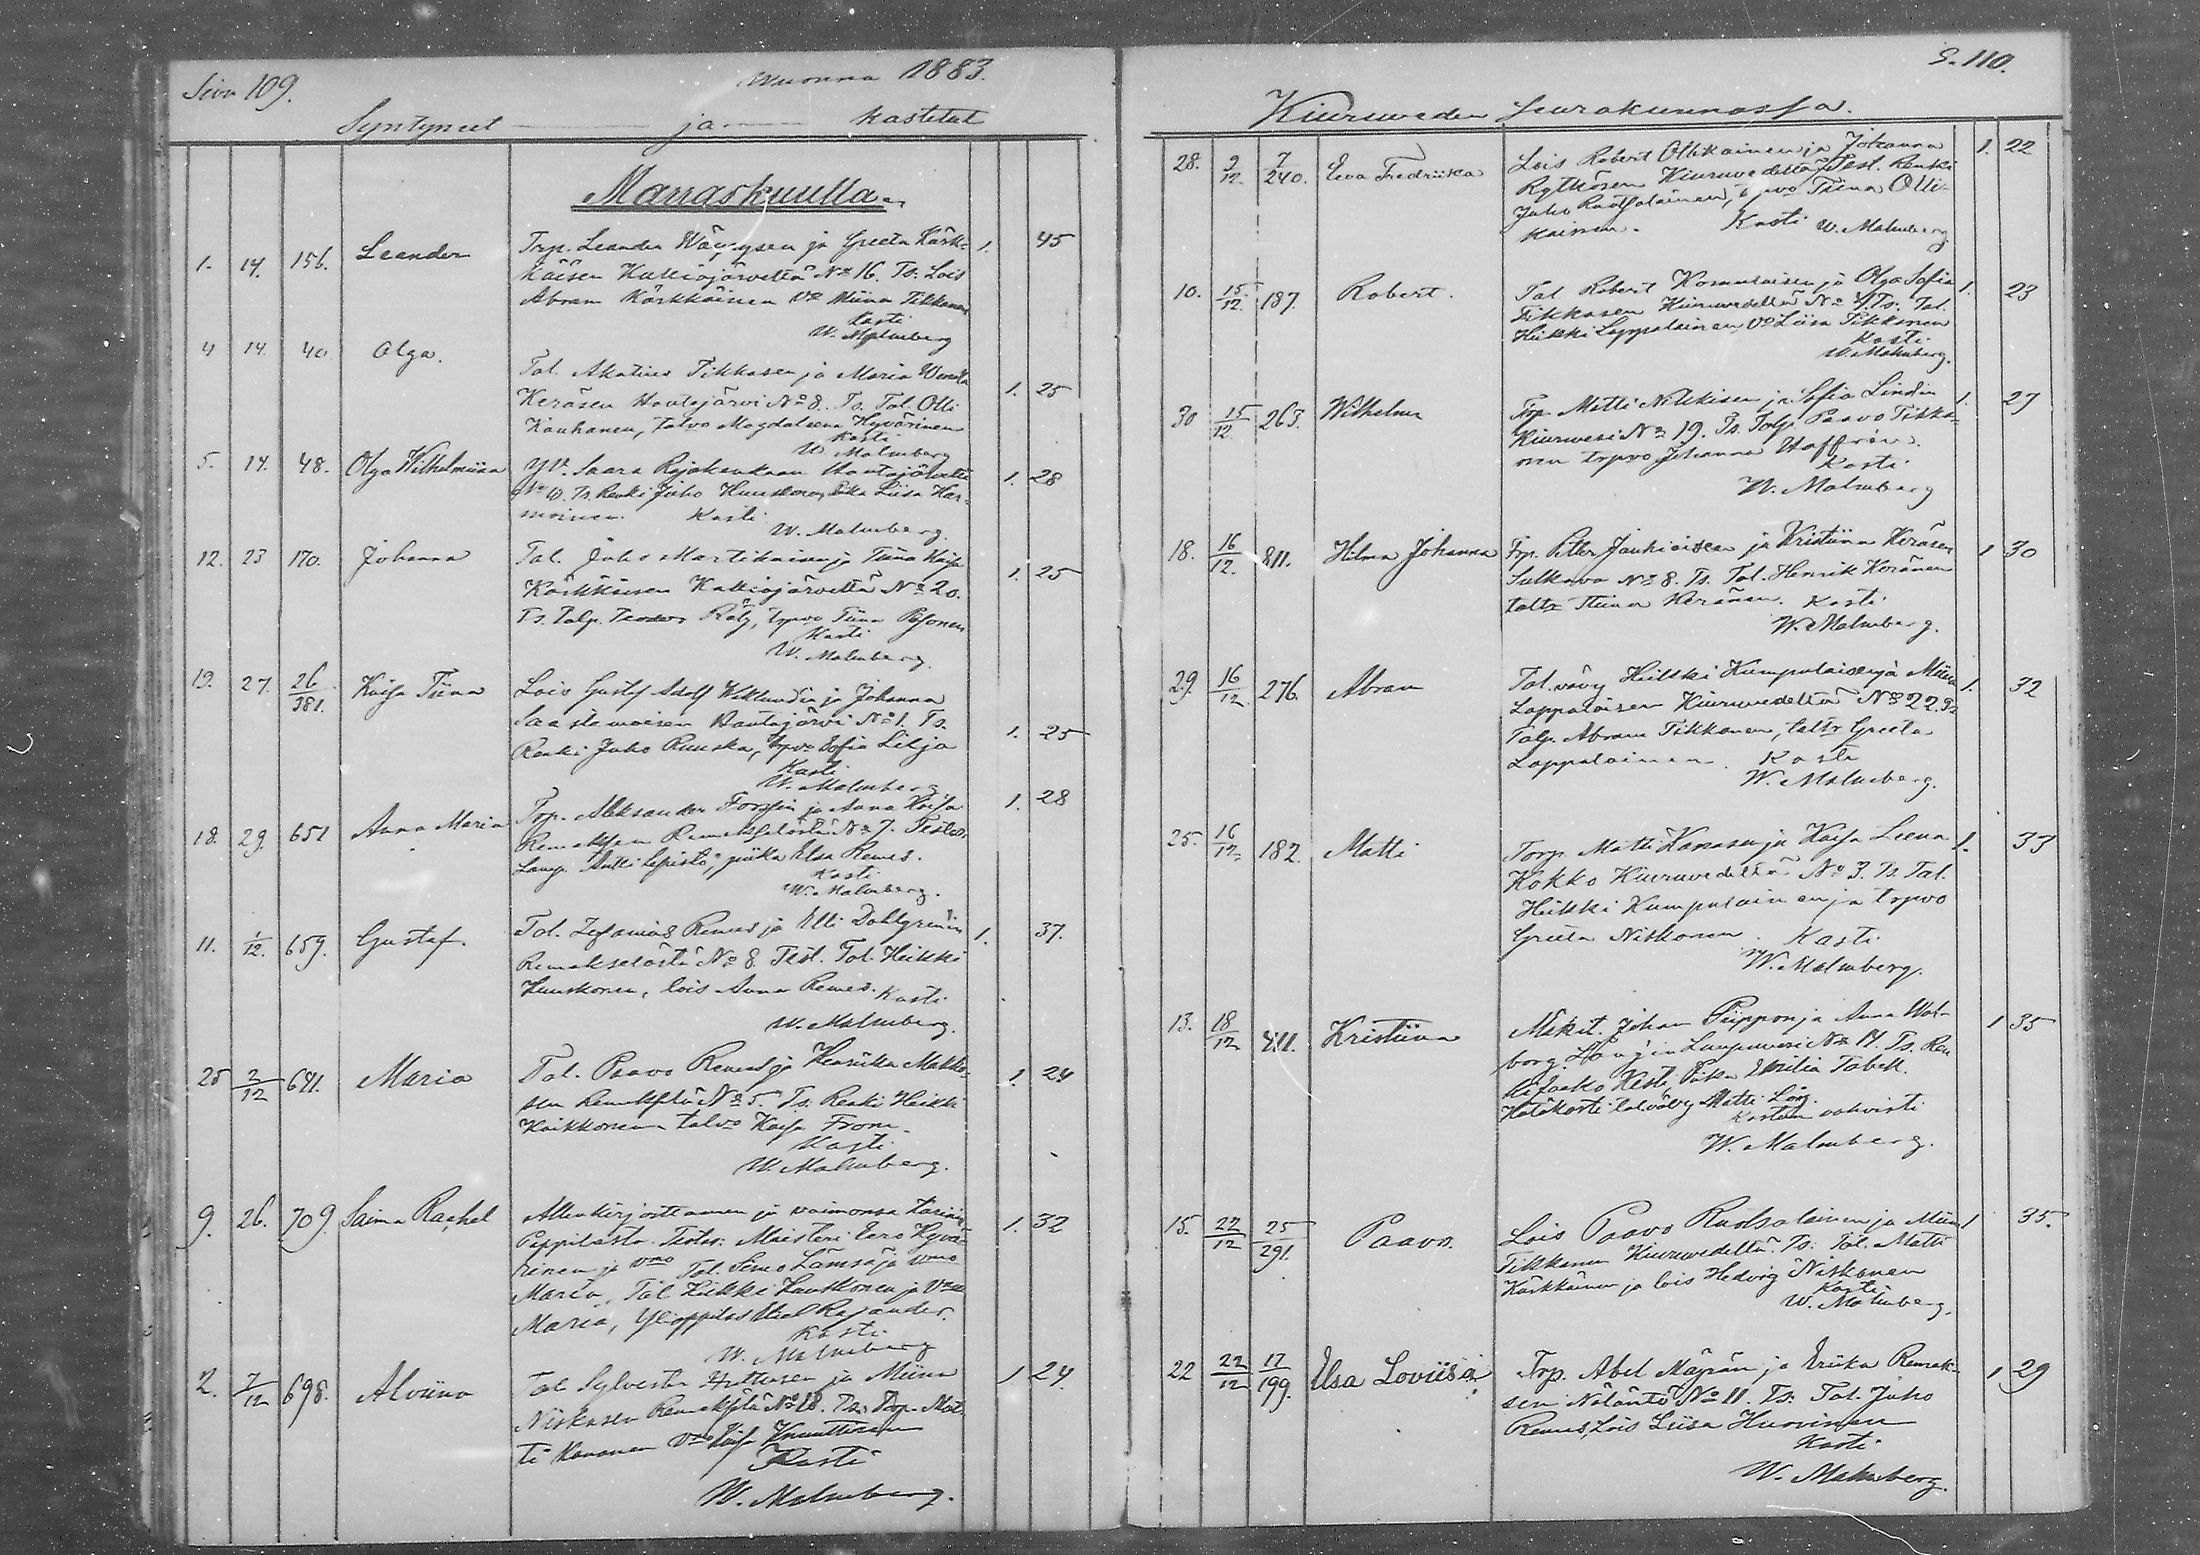 Sivu 109.
Wuonna 1883.
Syntyneet ja kastetut
Marraskuulla.
1. 14. 156. Leander
Trp. Leander Wäyrysen ja Greeta Kärk-
käisen Kalliojärveltä No 16. Ts: Lois
Abram Kärkkäinen vo Miina Tikkanen
Kasti
W. Malmberg
1. 45
4 14. 40. Olga.
Tal. Akatius Tikkasen ja Maria
Keräsen Hautajärvi No 8. Ts. Tal. Olli
Kauhanen, talvo Magdaleena Hyvärinen
Kasti
W. Malmberg
1. 25
5. 14. 48. Olga Wilhelmiina
Saara Hautajärveltä
Ts. Renki Juho Huuskonen, piika Liisa Har-
moinen. Kasti
W. Malmberg.
1. 28
12. 23 170. Johanna
Tal. Juho Martikainen ja Tiina Kaisa
Kärkkäisen Kalliojärveltä No 20.
Ts. Talp. Räty, trpvo Tiina
Kasti
W. Malmberg.
1. 25
19. 27. 26/381. Kaisa Tiina
Lois Gustaf Adolf Wiklundin ja Johanna
Saastamoisen Hautajärvi No 1. Ts.
Renki Juho Ruuska, trpvo Sofia Lilja
Kasti
W. Malmberg.
1. 25
18. 29. 651 Anna Maria
Trp. Aleksander ja Anna Kaisa
No 7.
piika Elsa Remes.
Kasti
W. Malmberg.
1. 28
11. 1/12. 659. Gustaf.
Tal. Zefanias Remes ja Elli Dahlgrenin
Remekselästä No 8. Test. Tal. Heikki
Huuskonen, lois Anna Remes. Kasti
W. Malmberg.
1. 37.
25 2/12 641. Maria
Tal. Paavo Remes ja Henrika Makko-
sen No 5. Ts. Renki Heikki
Kaikkonen talvo Kaisa From.
Kasti
W. Malmberg.
1. 24
9. 26. 709. Saima Rachel
Allekirjoittaneen ja vaimonsa
Pappilasta. Maisteri Eero Hyvä-
rinen ja vmo Tal. Simo Lämsä ja vmo
Maria, Tal. Heikki Huuskonen ja vmo
Maria, Ylioppilas
Kasti
W. Malmberg
1. 32
2. 7/12 698. Alviina
Tal Sylvester Hiltusen ja Miina
Niskasen No 18. Ts. Trp. Mat-
ti Kananen vmo Kaisa Knuuttinen
Kasti
W. Malmberg.
1 24.
S. 110.
Kiuruweden Seurakunnassa.
28. 9/12. 7/240. Eeva Fredriika
Lois Robert Ollikainen ja Johanna
Rytkösen Kiuruvedeltä Test. Renki
Juho Ruotsalainen, Tiina Olli-
kainen. Kasti W. Malmberg.
1. 22
10. 15/12. 187. Robert.
Tal Robert Komulaisen ja Olga Sofia
Tikkasen Kiuruvedeltä No 4 Ts: Tal.
Heikki Lappalainen, Vo Liisa Tikkanen
Kasti
W. Malmberg.
1. 23
30 15/12. 263. Wilhelm
Trp. Matti Nikkisen ja Sofia Lindin
Kiuruvesi No 19. Ts. Talp. Paavo Tikka-
nen trpvo Johanna Hoffrén.
Kasti
W. Malmberg
1. 27
18. 16/12. 811. Hilma Johanna
Trp. Petter Jauhiaisen ja Kristiina Keräsen
Sulkava No 8. Ts. Tal. Henrik Keränen
taltr Tiina Keränen. Kasti
W. Malmberg.
1 30
29. 16/12 276. Abram
Tal. vävy Heikki Kumpulaisen ja Miina
Lappalaisen Kiuruvedeltä No 22. Ts
Talp. Abram Tikkanen, taltr Greeta
Lappalainen. Kasti
W. Malmberg.
1. 32
25. 16/12 182. Matti
Torp. Matti Kanasen ja Kaisa Leena
Kokko Kiuruvedeltä No 3. Ts. Tal.
Heikki Kumpulainen ja trpvo
Greeta Niskanen. Kasti
W. Malmberg.
1. 33
13. 18/12 411. Kristiina
Mäkit. Johan Piippon ja Anna Wal-
borg Längin Lampuvesi No 14. Ts. Ren-
ki Jaakko Kesti, Piika Emilia Tabell.
Hätäkasti talvävy Matti Läng.
Kasteen vahvisti
W. Malmberg.
1 35
15. 22/12 25/291. Paavo.
Lois Paavo Ruotsalainen ja Miina
Tikkanen Kiuruvedeltä. Ts: Tal. Matti
Kärkkäinen ja lois Hedvig Niskanen
Kasti
W. Malmberg.
1 35.
22 22/12 17/199. Elsa Loviisa
Trp. Abel Mäyrän ja Eriika Remek-
sen Näläntö No 11. Ts: Tal. Juho
Remes, Lois Liisa Huovinen
Kasti
W. Malmberg.
1 29